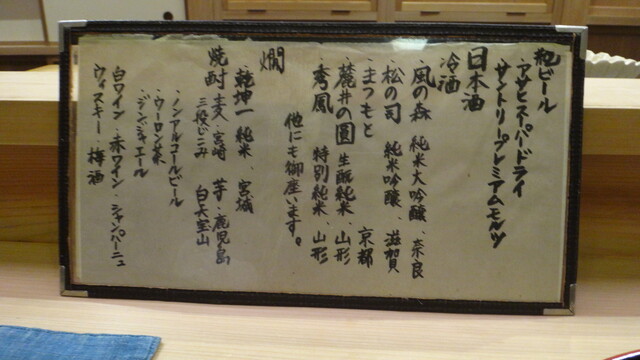 瓶ビール
・アサヒスーパードライ
・サントリープレミアムモルツ
日本酒
冷酒
・風の森 純米大吟醸、奈良
・松の司 純米吟醸、滋賀
・まつもと 京都
・麓井の圓 生酛純米、山形
・秀鳳 特別純米、山形
他にも御座います。
燗
・乾坤一 純米、宮城
焼酎 麦・宮崎 芋・鹿児島
三段じこみ 白天宝山
・ノンアルコールビール
・ウーロン茶
・ジンジャエール
白ワイン・赤ワイン・シャンパーニュ
ウィスキー・梅酒